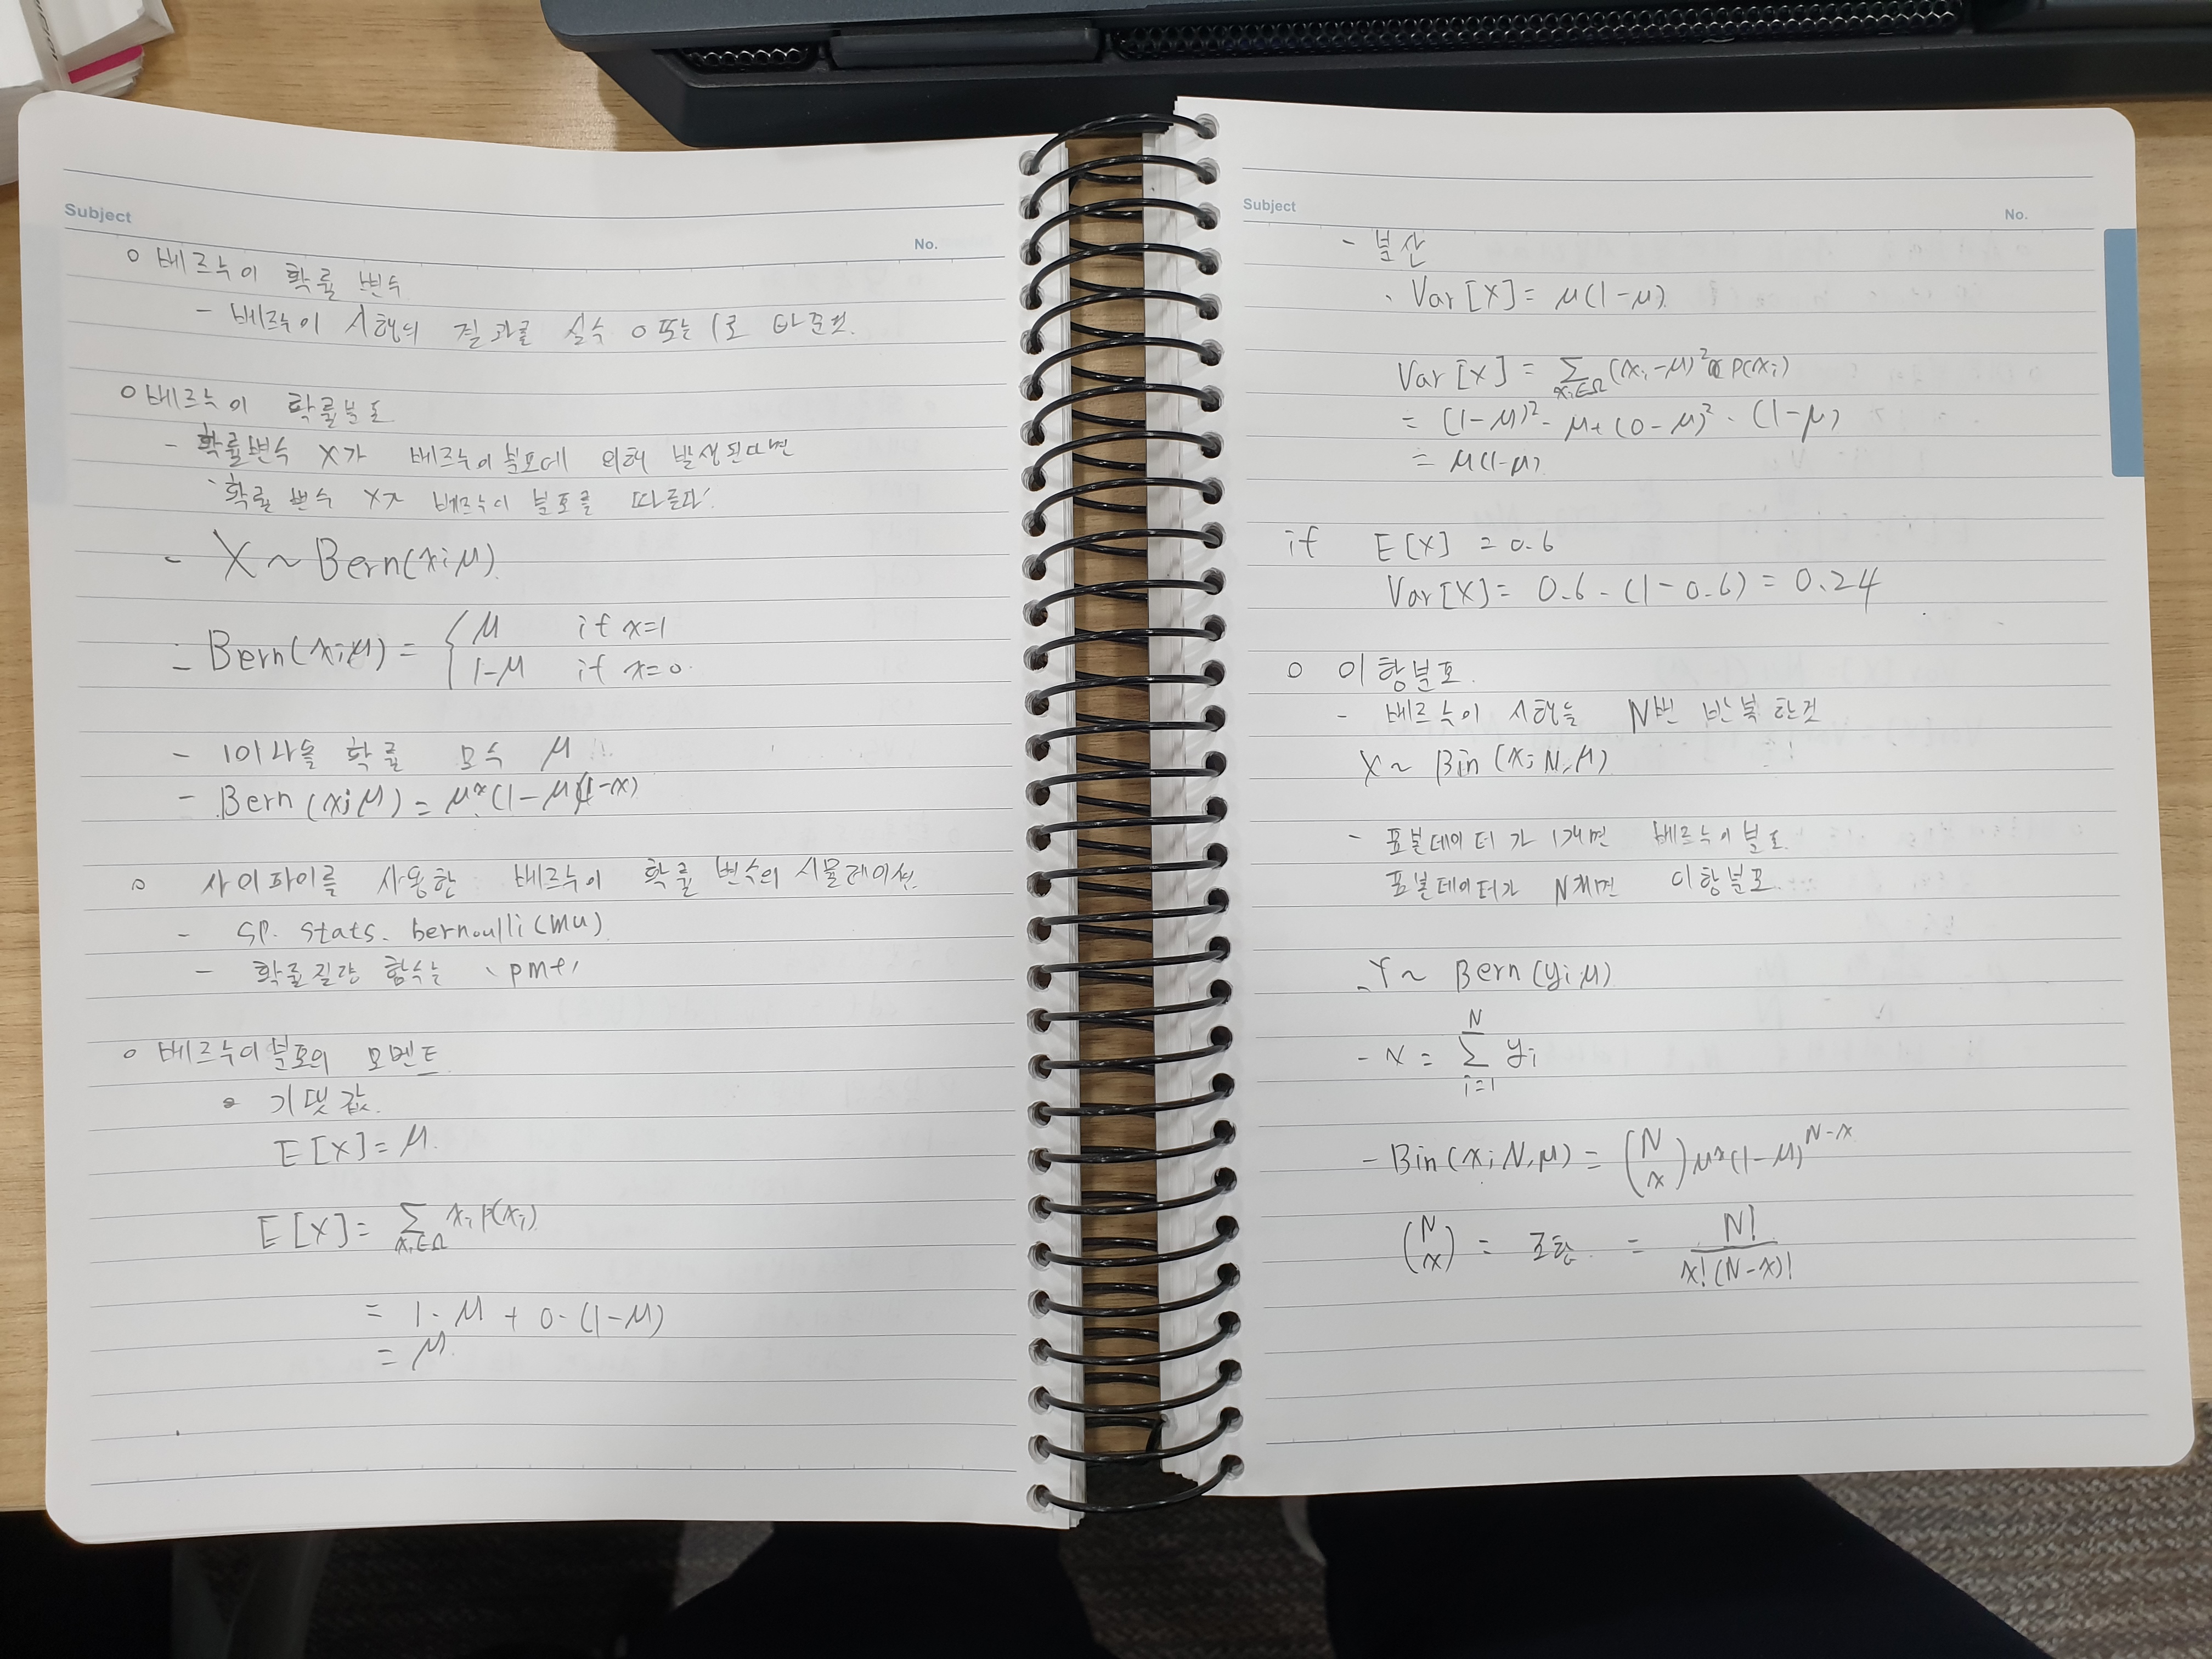 Subject
No.
o 베르누이 확률 변수
- 베르누이 시행의 결과를 실수 0 또는 1로 바꾼것.
o 베르누이 확률분포
- 확률변수 X가 베르누이 분포에 의해 발생된다면
'확률 변수 X가 베르누이 분포를 따른다'
- X ~ Bern(x;μ)
- Bern(x;μ) = { μ if x=1
1-μ if x=0
- 1이 나올 확률 모수 μ
- Bern(x;μ) = μ^x(1-μ)^(1-x)
o 사이파이를 사용한 베르누이 확률 변수의 시뮬레이션
- sp. stats. bernoulli(mu)
- 확률질량 함수는 'pmf'
o 베르누이분포의 모멘트
• 기댓값.
E[X] = μ.
E[X] = Σ_{xi∈Ω} xi p(xi)
= 1·μ + 0·(1-μ)
= μ
Subject
No.
- 분산
· Var[X] = μ(1-μ)
Var[X] = Σ_{xi∈Ω} (xi-μ)² p(xi)
= (1-μ)²·μ + (0-μ)²·(1-μ)
= μ(1-μ)
if E[X] = 0.6
Var[X] = 0.6·(1-0.6) = 0.24
o 이항분포.
- 베르누이 시행을 N번 반복 한것
X ~ Bin(x;N,μ)
- 표본데이터가 1개면 베르누이분포
표본데이터가 N개면 이항분포
- Y ~ Bern(y;μ)
- X = Σ_{i=1}^{N} yi
- Bin(x;N,μ) = (N x) μ^x(1-μ)^{N-x}
(N x) = 조합 = N! / x!(N-x)!